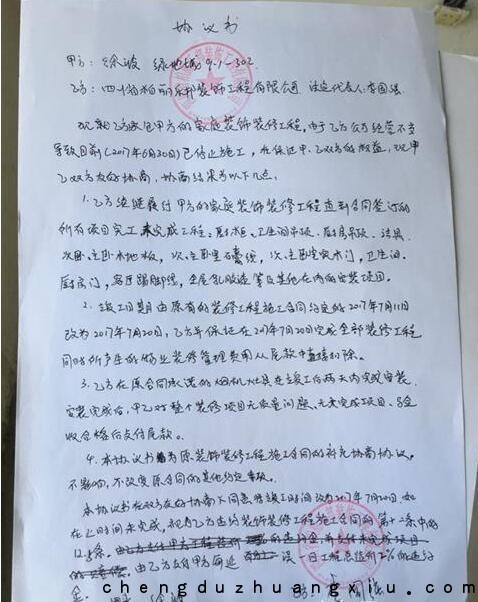 协议书
甲方：徐波 绿地城9-1-302
乙方：四川柏丽乐邦装饰工程有限公司 法定代表人：李国强
现就乙方承包甲方的家庭装饰装修工程，由于乙方公司经营不善
导致目前(2017年6月30日)已停止施工，为保证甲、乙双方的权益，现甲
乙双方友好协商，协商结果为以下几点：
1. 乙方继续履行甲方的家庭装饰装修工程直到合同签订的
所有项目完工 未完成工程：厨柜、卫生间吊顶、厨房吊顶、洁具
次卧、主卧木地板，次、主卧室石膏线，次、主卧室实木门，卫生间、
厨房门，客厅踢脚线，全屋乳胶漆等及其他在内的安装项目。
2. 竣工日期由原有的装修工程施工合同约定的2017年7月11日
改为2017年7月20日，乙方需保证在2017年7月20日完成全部装修工程
同时所产生的物业装修管理费用从尾款中直接扣除。
3. 乙方在原合同承诺的烟机灶具在竣工后两天内完成安装，
安装完成后，甲乙对整个装修项目无质量问题、无未完成项目、验
收合格后支付尾款。
4. 本协议书为原装饰装修工程施工合同的补充协商协议，
不影响、不改变原合同的其他约定事项。
本协议书在双方友好协商下同意将竣工时间改为2017年7月20日，如
在此时间未完成，视为乙方违约装饰装修工程施工合同的第十二条中的
12.5条。
由乙方支付甲方每延误一日工程总造价2%的违约
金。
chengduzhuangxiu.com